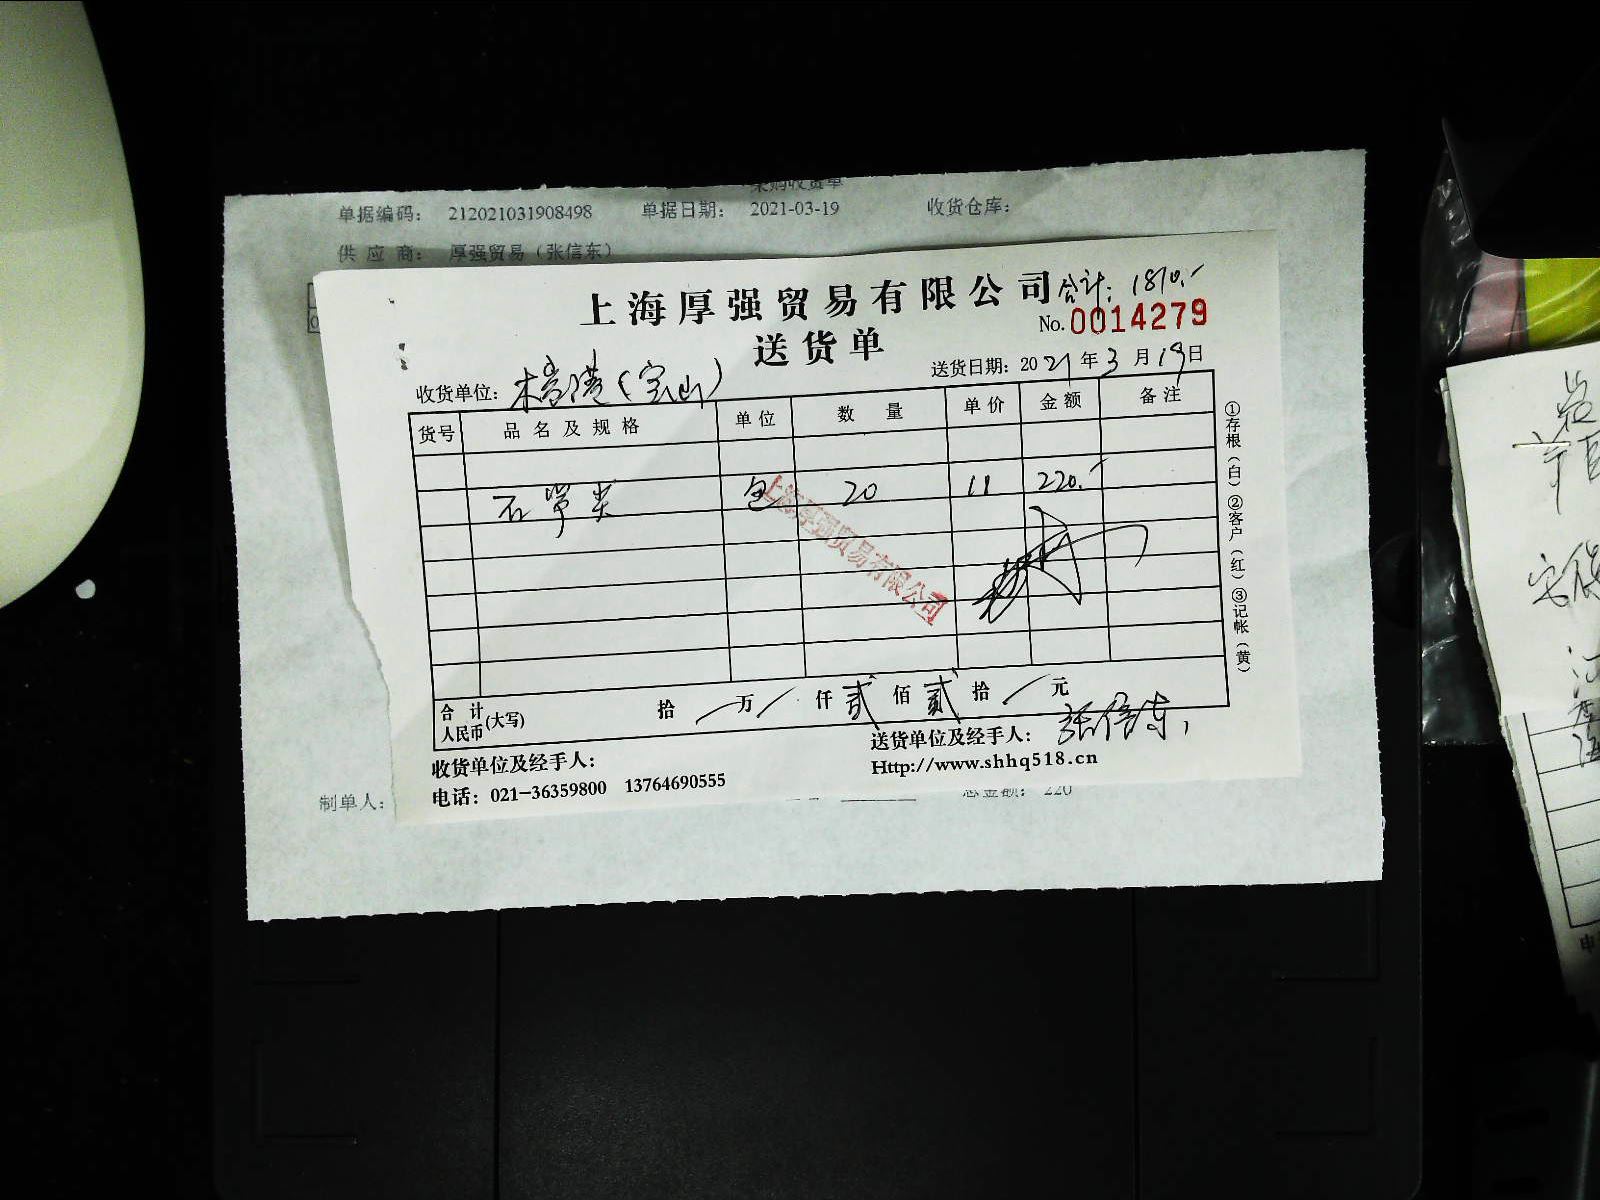 采购收货单
单据编码： 212021031908498 单据日期： 2021-03-19 收货仓库：
供 应 商： 厚强贸易（张信东）
上海厚强贸易有限公司 合计：1810.-
No. 0014279
送货单
收货单位： (宝山) 送货日期：2021年3月19日
货号 品名及规格 单位 数量 单价 金额 备注
石 尖 包 20 11 220.-
上海厚强贸易有限公司
①存根（白）②客户（红）③记帐（黄）
合计人民币(大写) 拾 万 仟 贰 佰 贰 拾 元
收货单位及经手人： 送货单位及经手人： 张信东
电话：021-36359800 13764690555 Http://www.shhq518.cn
制单人： 总金额： 220